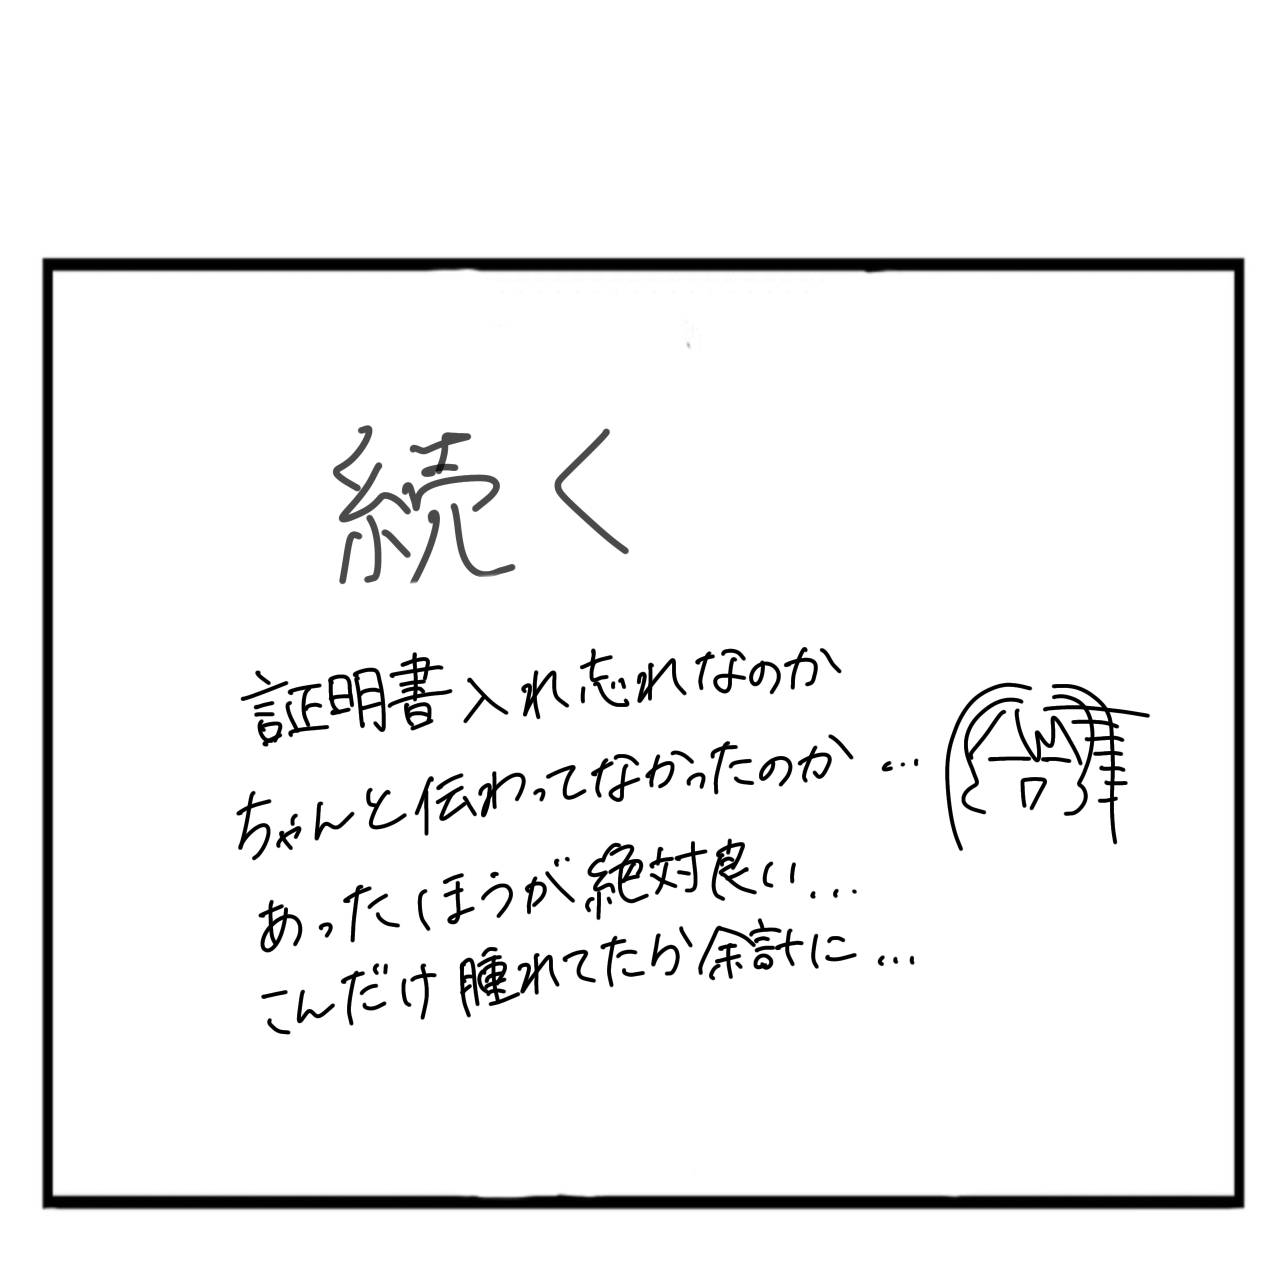 続く
証明書入れ忘れなのか
ちゃんと伝わってなかったのか…
あったほうが絶対良い…
こんだけ腫れてたら余計に…